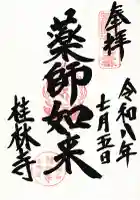 奉拝
令和八年
七月五日
薬師如来
桂林寺